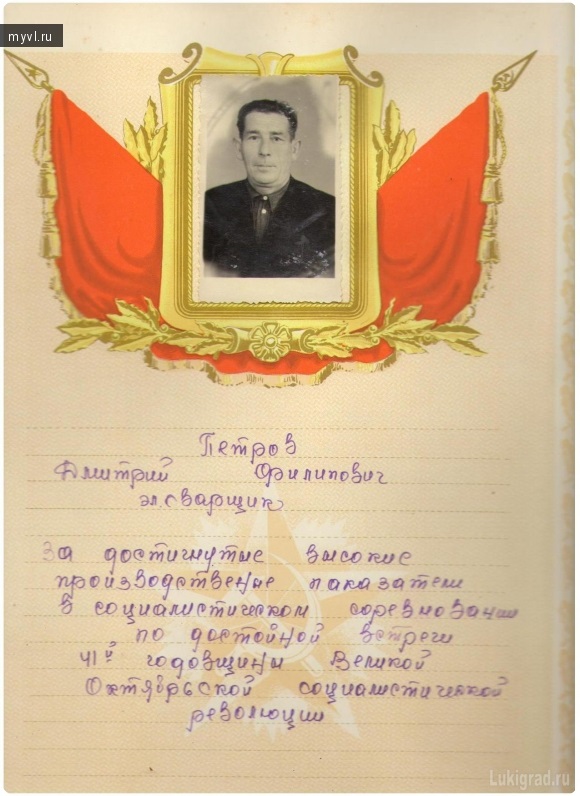 myvl.ru
Петров
Дмитрий Филипович
эл.сварщик
За достигнутые высокие
производственые паказатели
в социалистическом соревновании
по достойной встречи
41й годовщины Великой
Октябрьской социалистической
революции
Lukigrad.ru